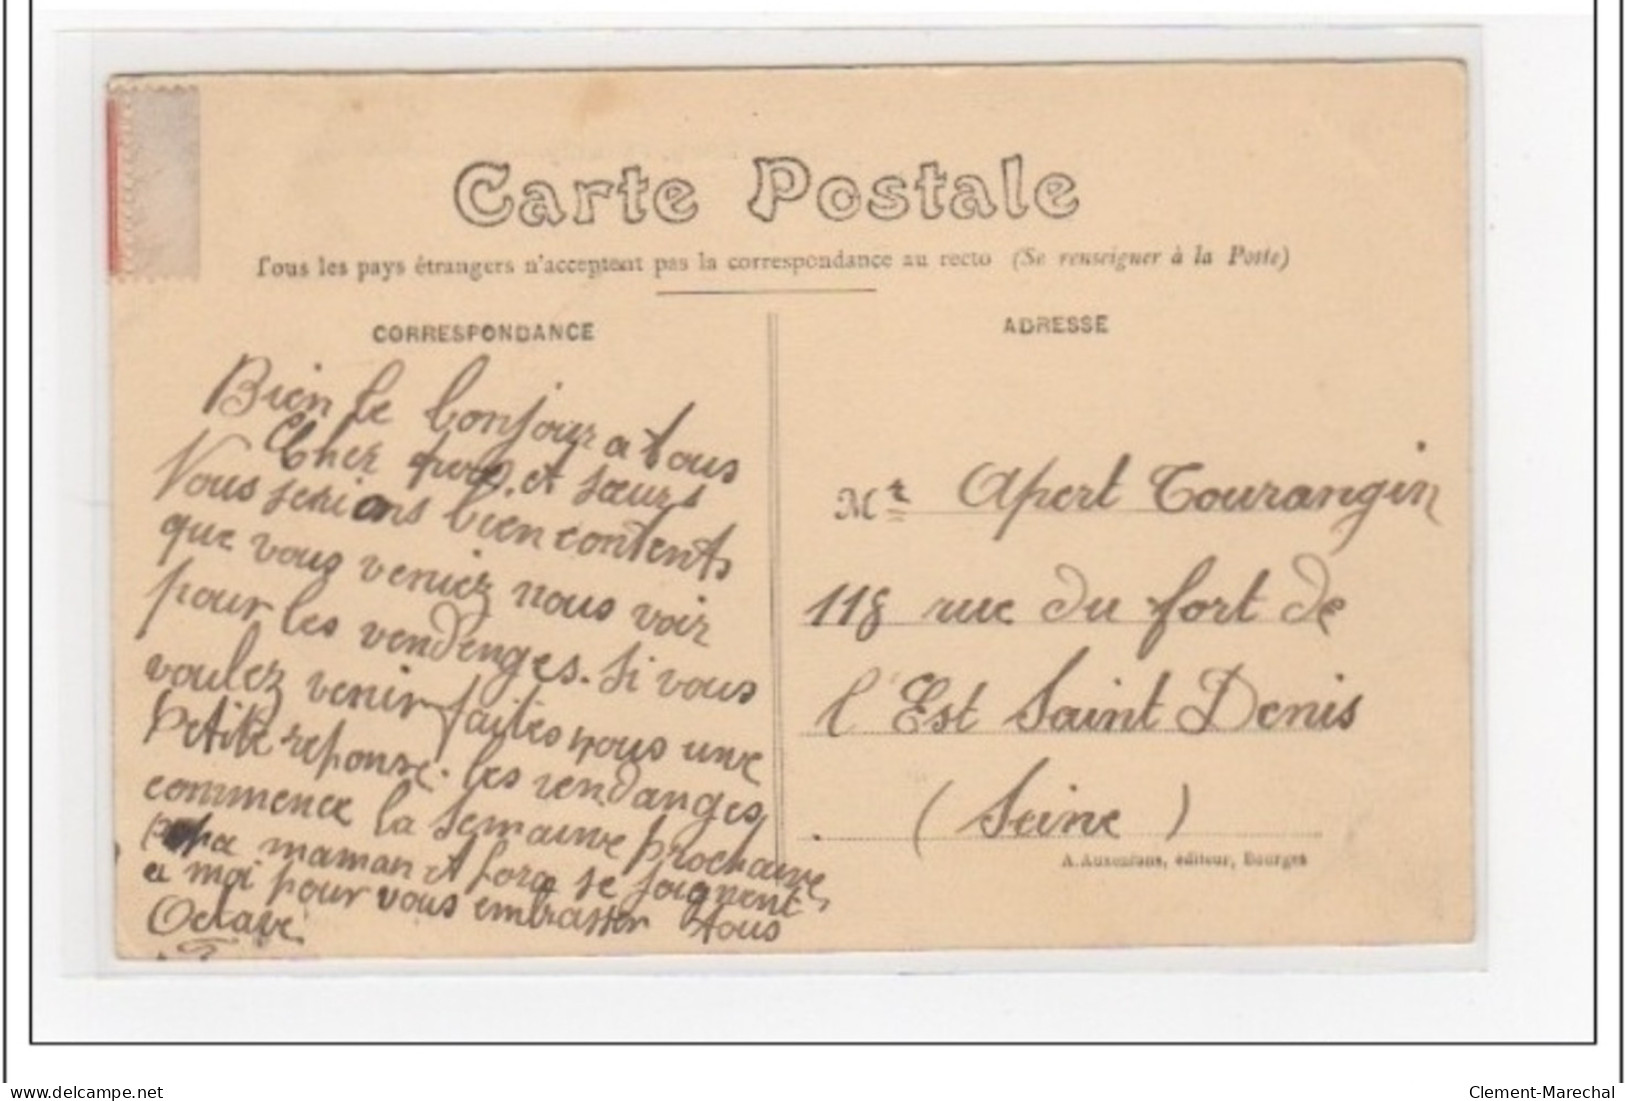 Carte Postale
Tous les pays étrangers n'acceptent pas la correspondance au recto (Se renseigner à la Poste)
CORRESPONDANCE
Bien le bonjour a tous
Cher frère et sœurs
Nous serions bien contents
que vous veniez nous voir
pour les vendenges. Si vous
voulez venir faites nous une
petite reponse. les vendanges
commence la semaine prochaine
papa maman et se joignent
a moi pour vous embrasser tous
Octave
ADRESSE
Mr Apert Tourangin
118 rue du fort de
l'Est Saint Denis
(Seine)
A. Auxenfans, éditeur, Bourges
delcampe.net
Clement-Marechal